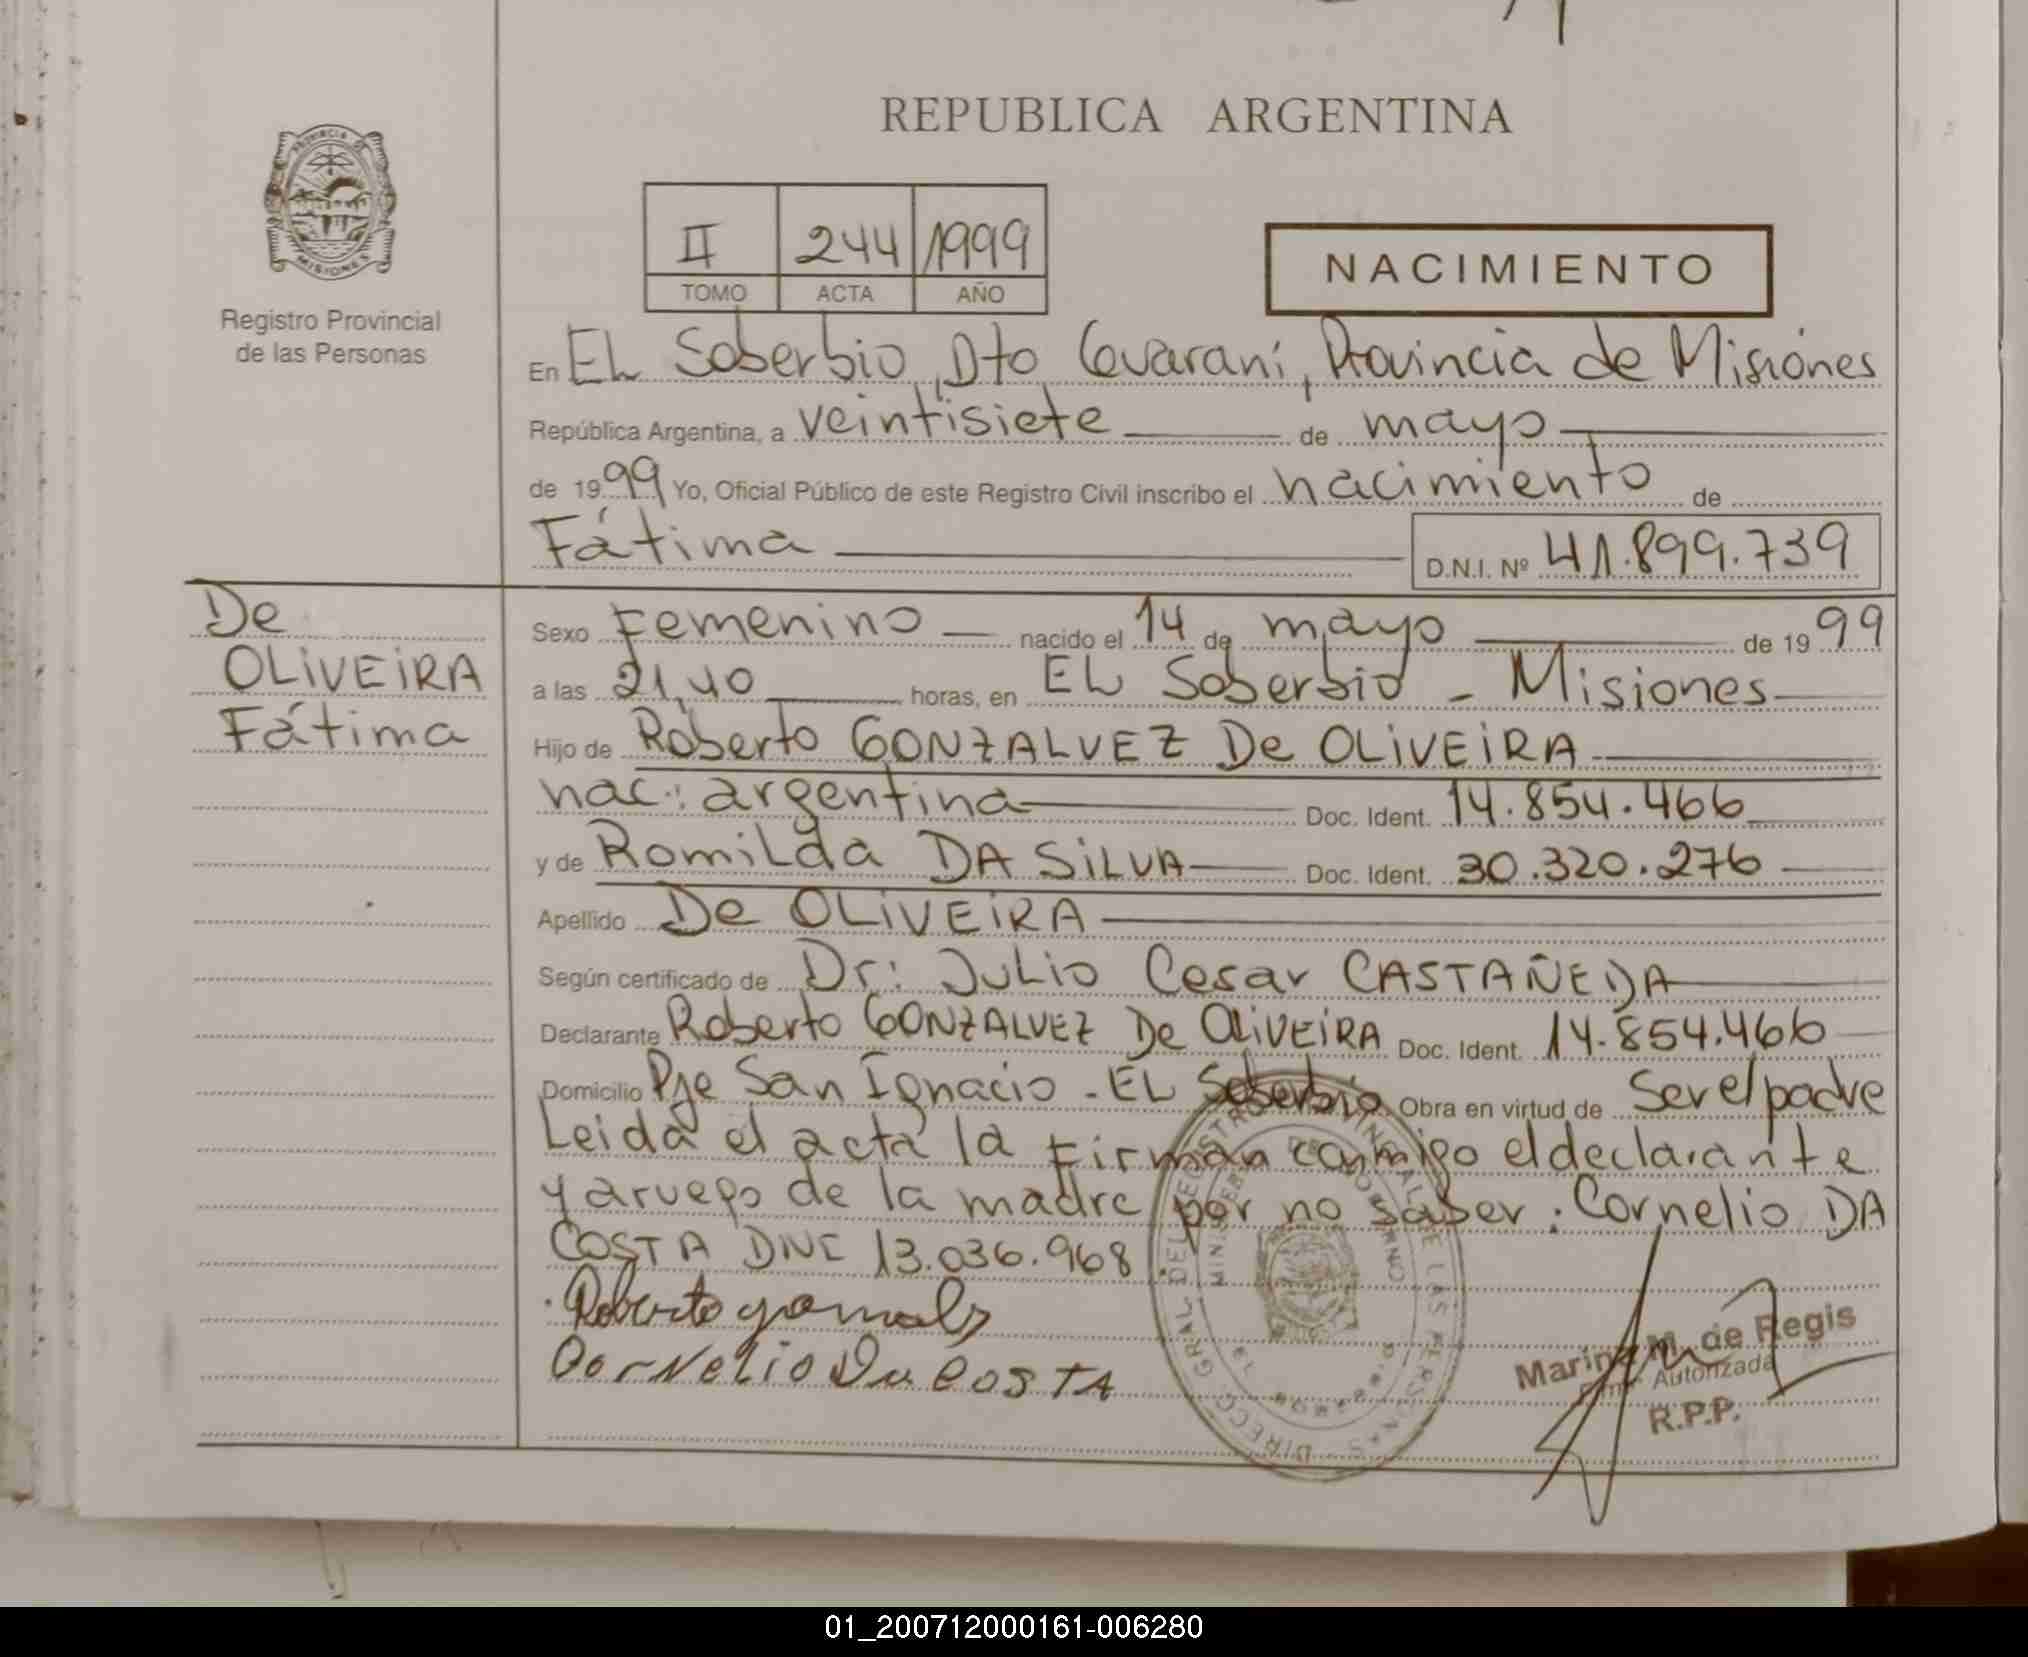 REPUBLICA ARGENTINA
PROVINCIA DE
MISIONES
Registro Provincial
de las Personas
II 244 1999
TOMO ACTA AÑO
NACIMIENTO
En EL Soberbio, Dto Guaraní, Provincia de Misiones
República Argentina, a veintisiete de mayo
de 1999 Yo, Oficial Público de este Registro Civil inscribo el nacimiento de
Fátima D.N.I. Nº 41.899.739
De
OLIVEIRA
Fátima
Sexo Femenino nacido el 14 de mayo de 1999
a las 21,40 horas, en EL Soberbio - Misiones
Hijo de Roberto GONZALVEZ De OLIVEIRA
nac.: argentina Doc. Ident. 14.854.466
y de Romilda DA SILVA Doc. Ident. 30.320.276
Apellido De OLIVEIRA
Según certificado de Dr: Julio Cesar CASTAÑEDA
Declarante Roberto GONZALVEZ De OLIVEIRA Doc. Ident. 14.854.466
Domicilio Pje San Ignacio - EL Soberbio Obra en virtud de Ser el padre
Leida el acta la firman conmigo el declarante
y aruego de la madre por no saber: Cornelio DA
COSTA DNI 13.036.968
Roberto
Cornelio Da COSTA
DIRECC. GRAL. DEL REGISTRO PROVINCIAL DE LAS PERSONAS
MINISTERIO DE GOBIERNO
Marina M. de Regis
Firma Autorizada
R.P.P.
01_200712000161-006280